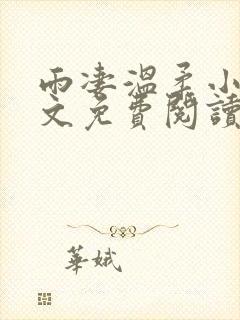 雨凄溫柔小
文免費閱讀
華娥